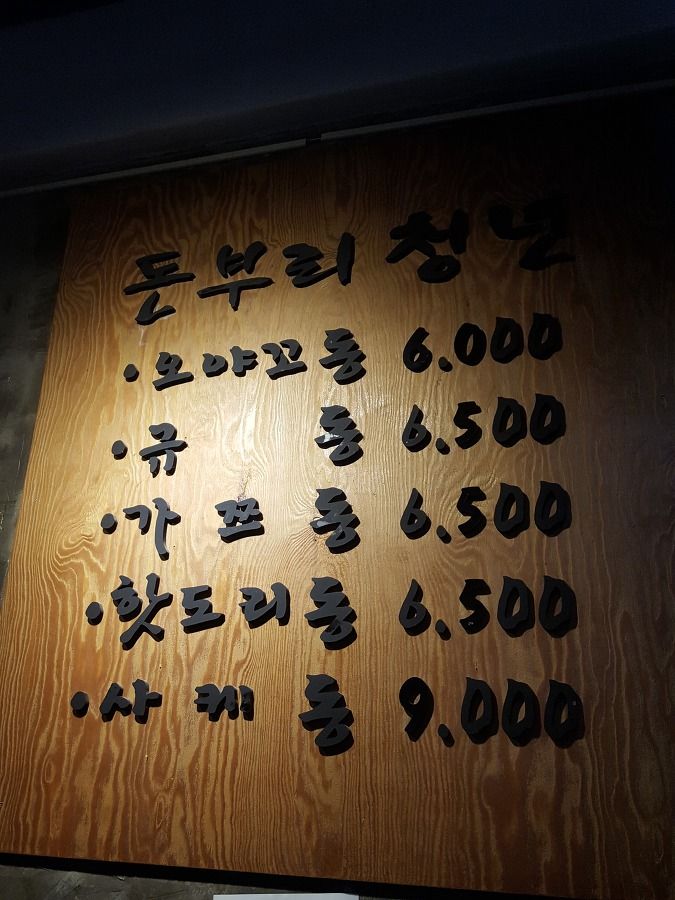 돈부리 청년
·오야꼬동 6.000
·규동 6.500
·가쯔동 6.500
·핫도리동 6.500
·사케동 9.000